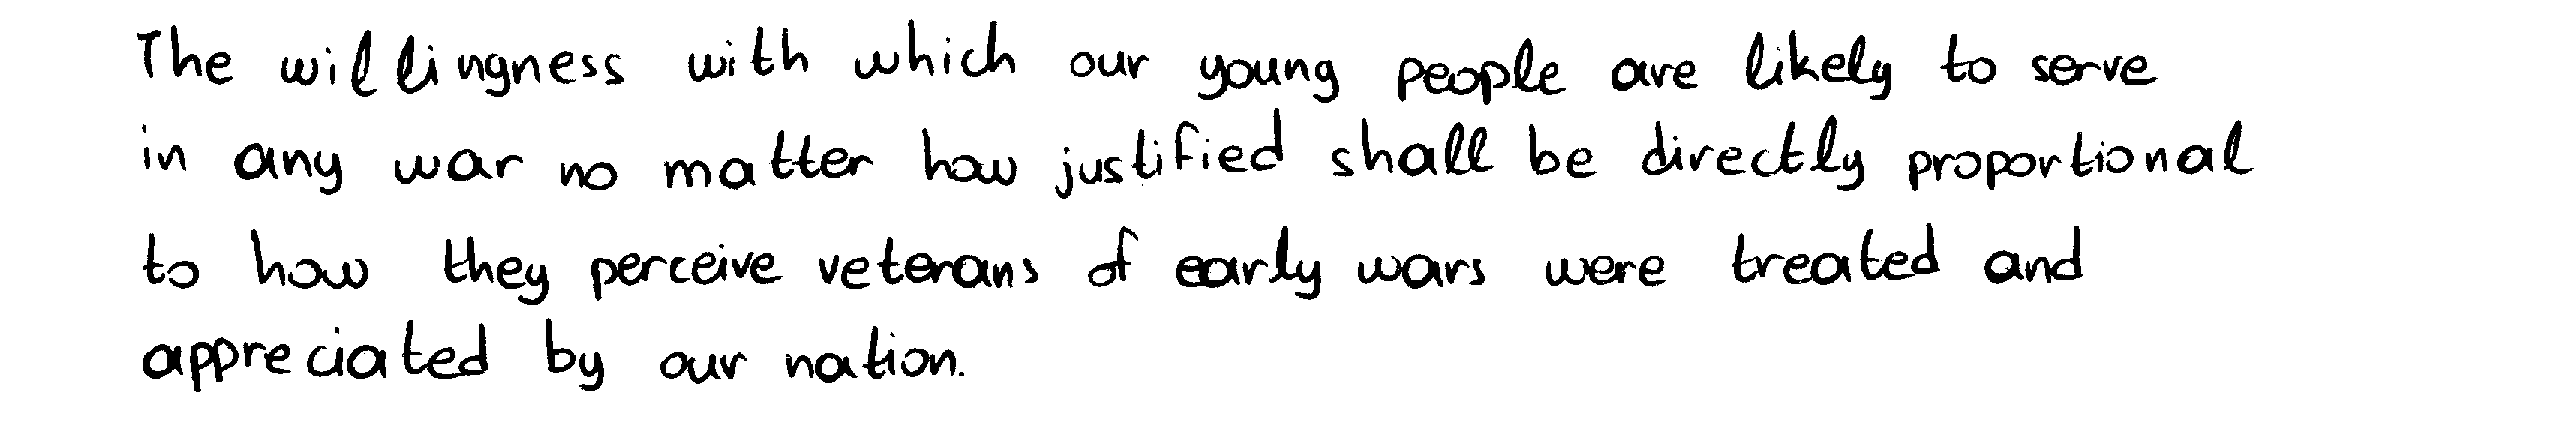 The willingness with which our young people are likely to serve
in any war no matter how justified shall be directly proportional
to how they perceive veterans of early wars were treated and
appreciated by our nation.